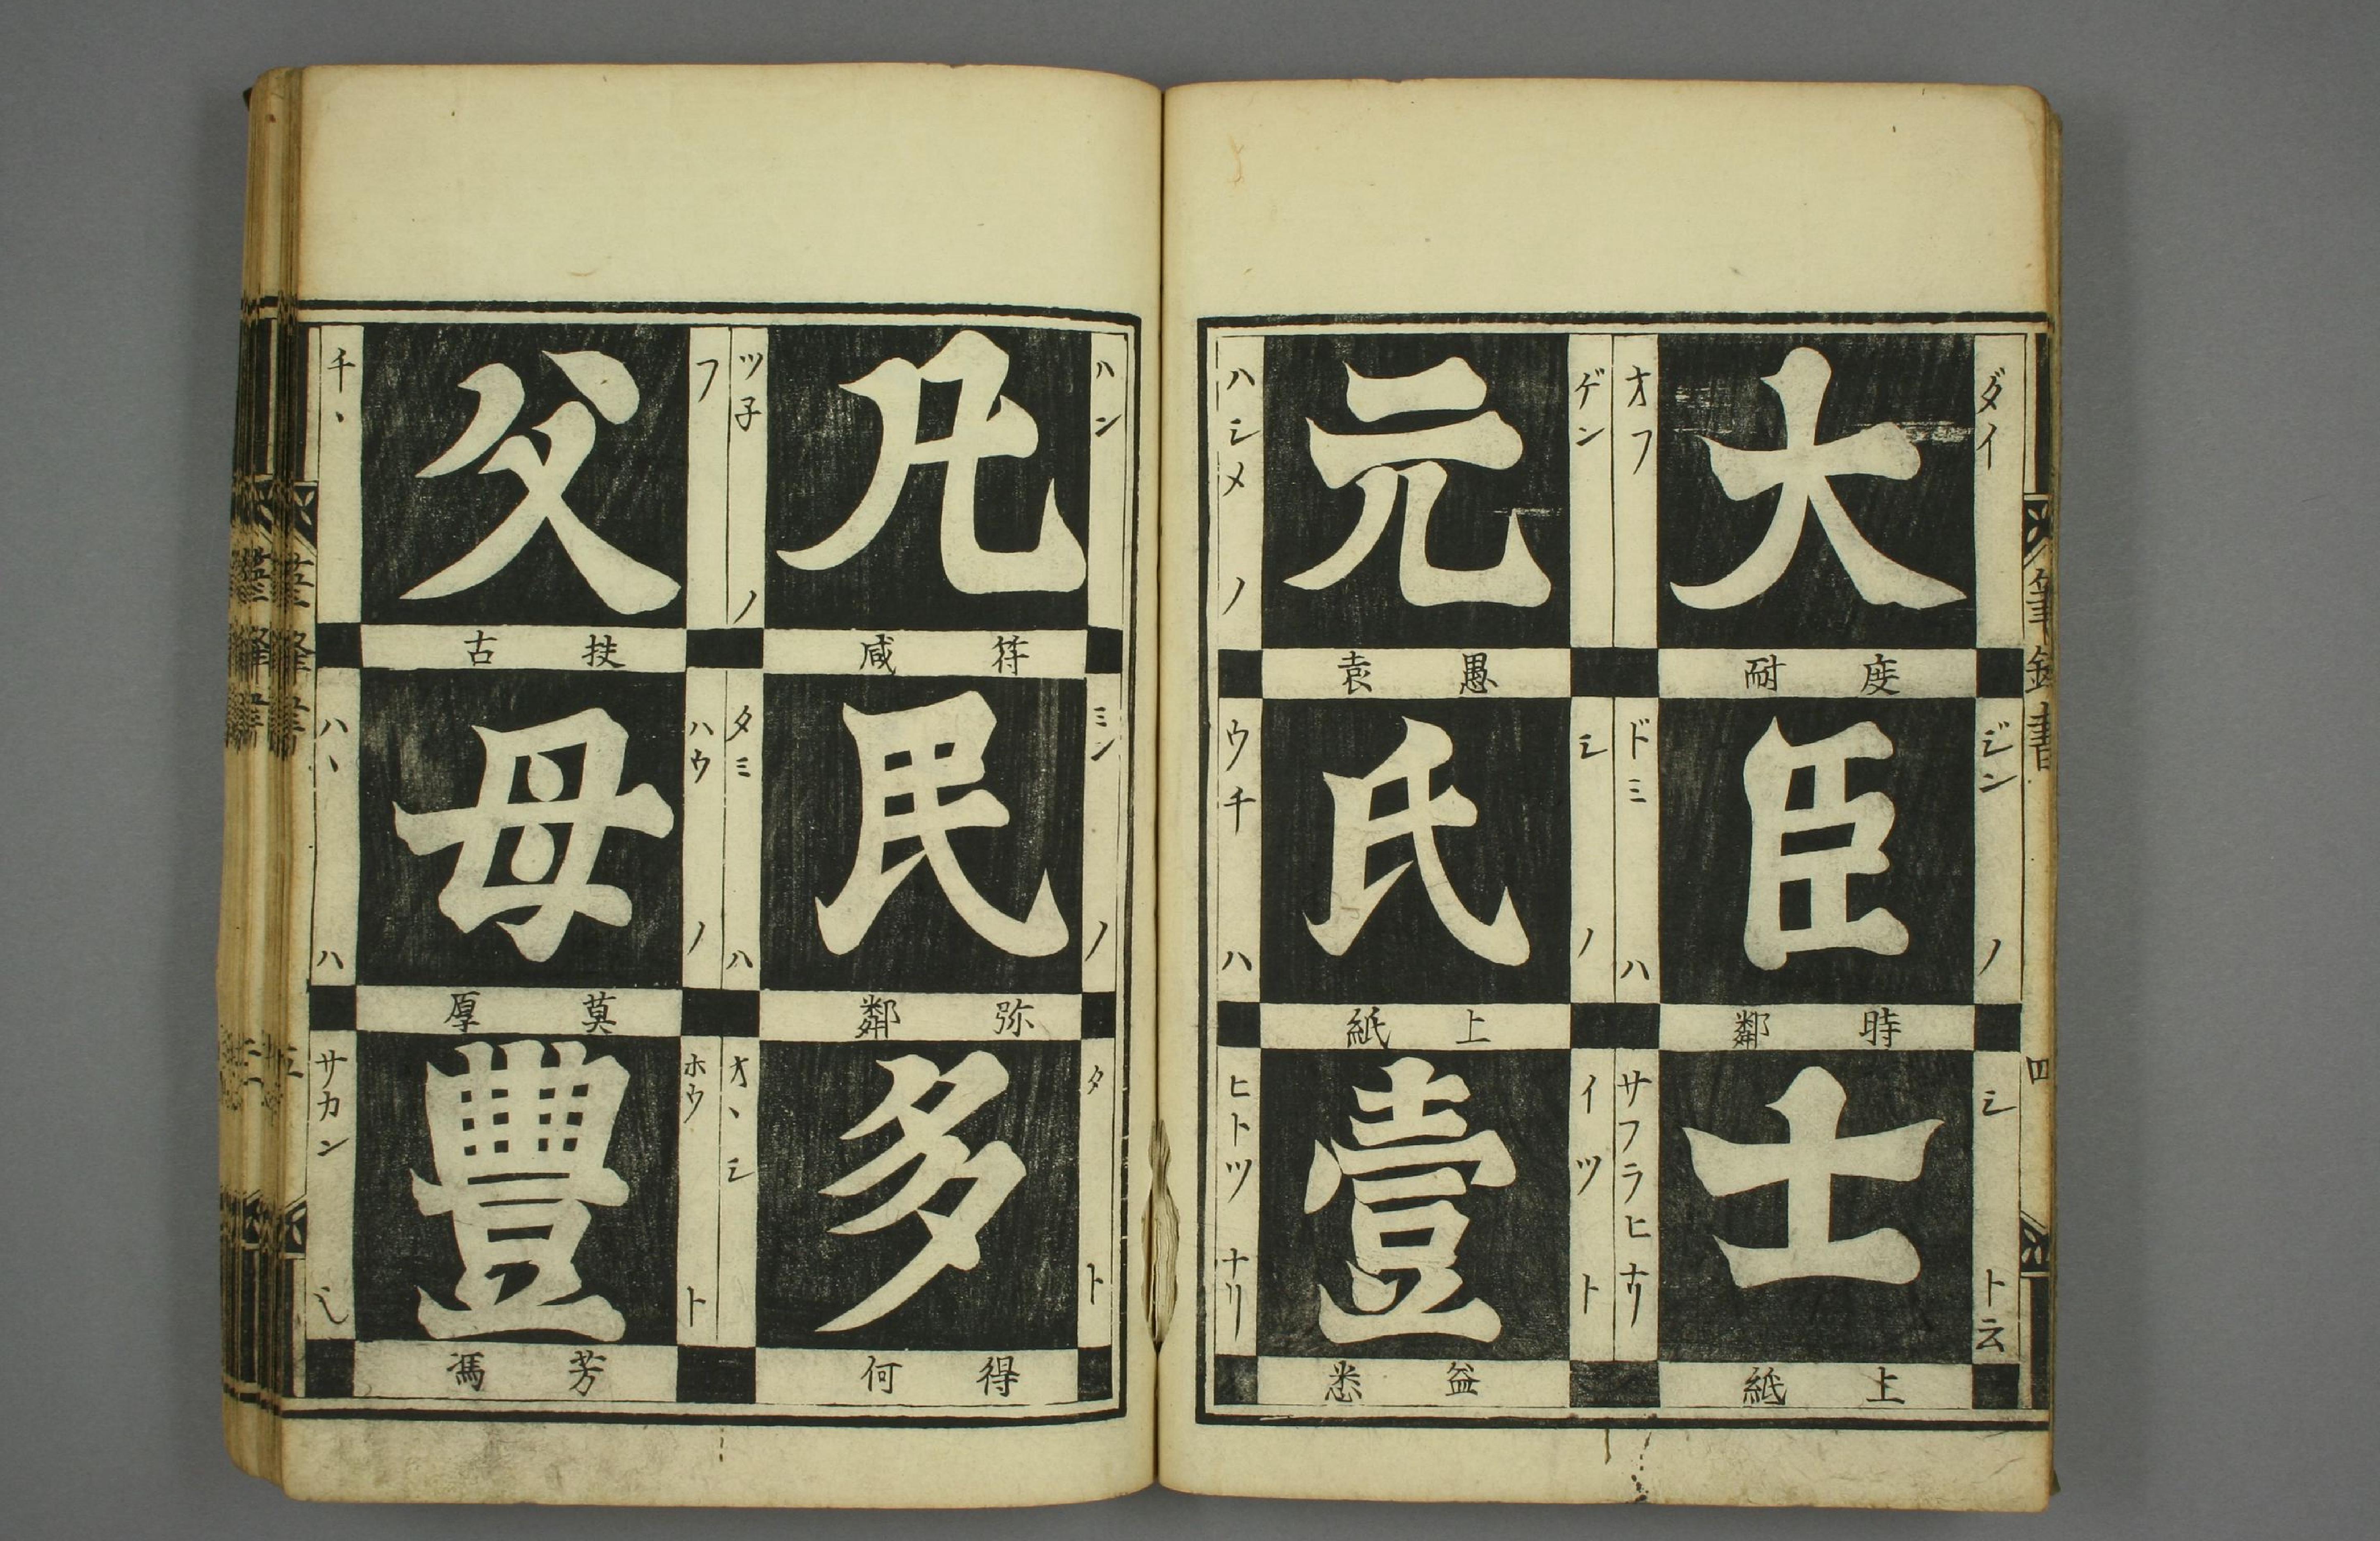 筆鋒書
四
ダイ
大
オフ
度耐
ジン ノ
臣
ドミ ハ
時鄰
シ ト云
士
サフラヒナリ
上紙
ゲン
元
ハシメ ノ
愚袁
シ ノ
氏
ウチ ハ
上紙
イツ ト
壹
ヒトツ ナリ
益悉
ハン
凡
ツ子 ノ
符咸
ミン ノ
民
タミ ハ
弥鄰
タ ト
多
オヽシ
得何
フ
父
チヽ
扶古
ハウ ノ
母
ハヽ ハ
莫厚
ホウ ト
豐
サカン
芳馮
筆鋒書
五